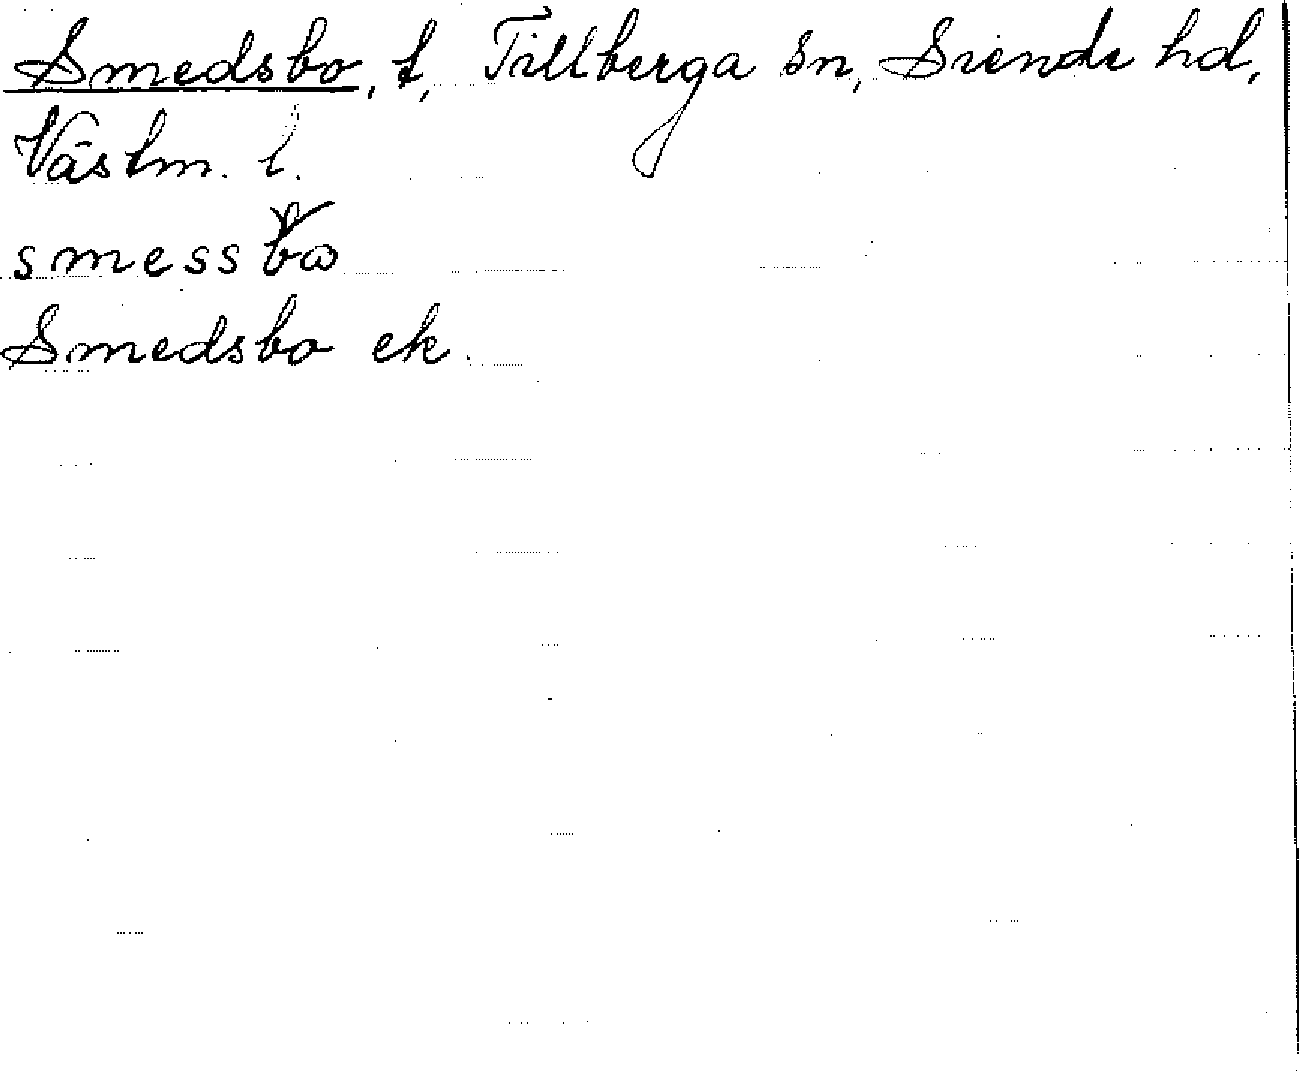 Smedsbo, t, Tillberga sn, Siende hd,
Västm. l.
smessbω
Smedsbo ek.